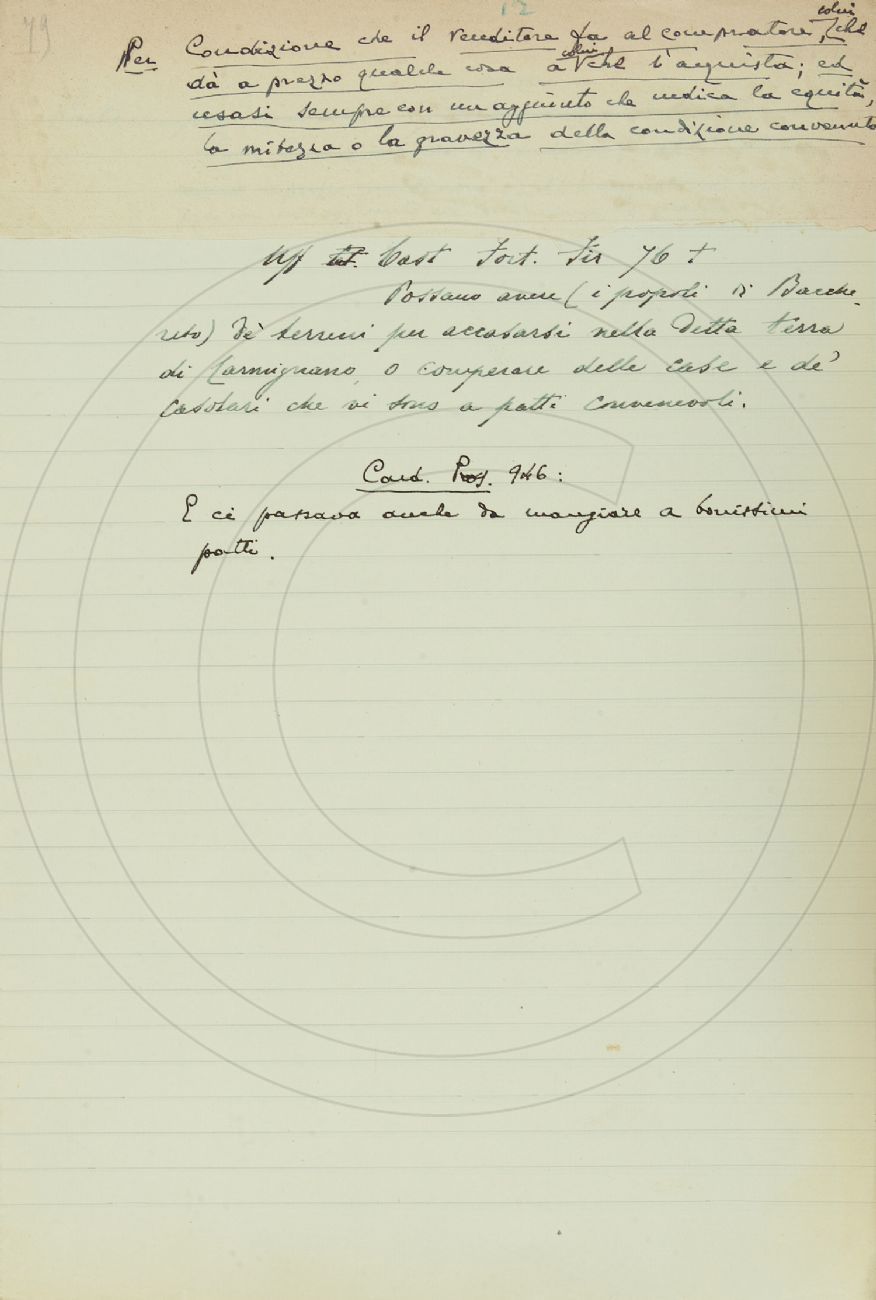 79
12
Per Condizione che il venditore fa al compratore, colui che
dà a prezzo qualche cosa a colui che l'acquista; ed
usasi sempre con un aggiunto che indica la equità,
la mitezza o la gravezza della condizione convenuta
Uff Cast Fort. Fir 76 t
Possano avere (i popoli di Bacche-
reto) de' terreni per accasarsi nella detta terra
di Carmignano, o comperare delle case e de'
casolari che vi sono a patti convenevoli.
Card. Pros. 946:
E ci passava anche da mangiare a bonissimi
patti.